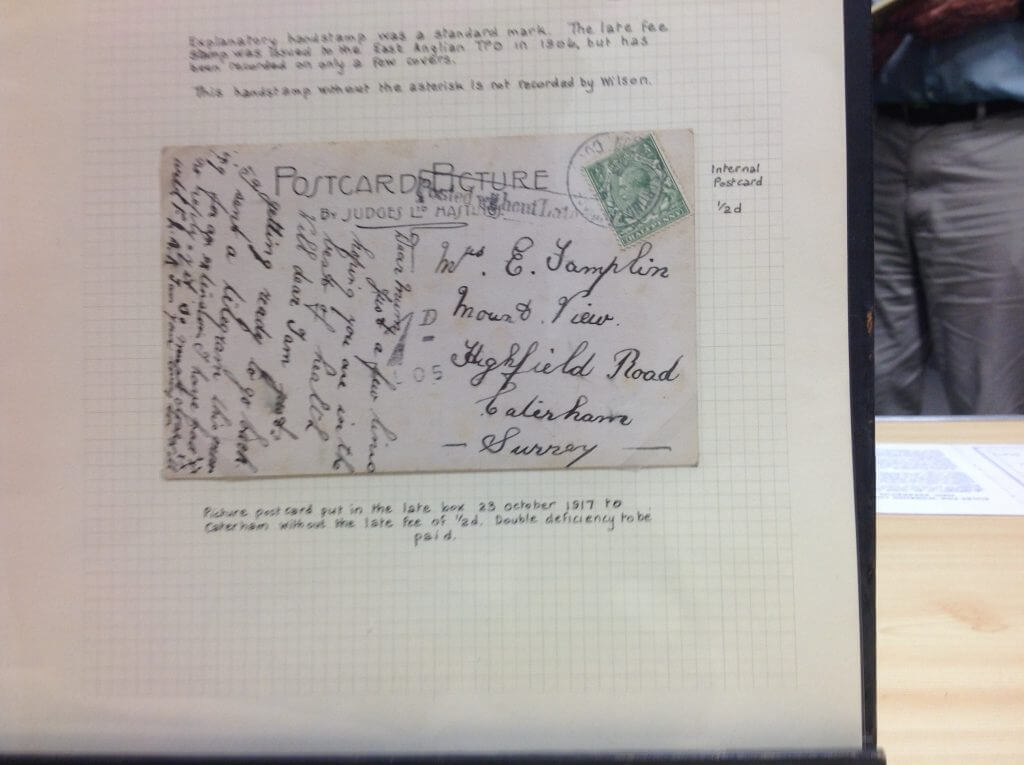 Explanatory handstamp was a standard mark. The late fee
stamp was issued to the East Anglian TPO in 1906, but has
been recorded on only a few covers.
This handstamp without the asterisk is not recorded by Wilson.
POSTCARD PICTURE
BY JUDGES LTD HASTINGS
Posted without Late
Internal
Postcard
½d
Mrs. E. Tamplin
Mount. View.
Highfield Road
Caterham
— Surrey —
D
05
Dear Mum
Just a few lines
hoping you are in the
best of health
Well dear I am just
getting ready to go back
sent a telegram this
Picture postcard put in the late box 23 october 1917 to
Caterham without the late fee of ½d. Double deficiency to be
paid.